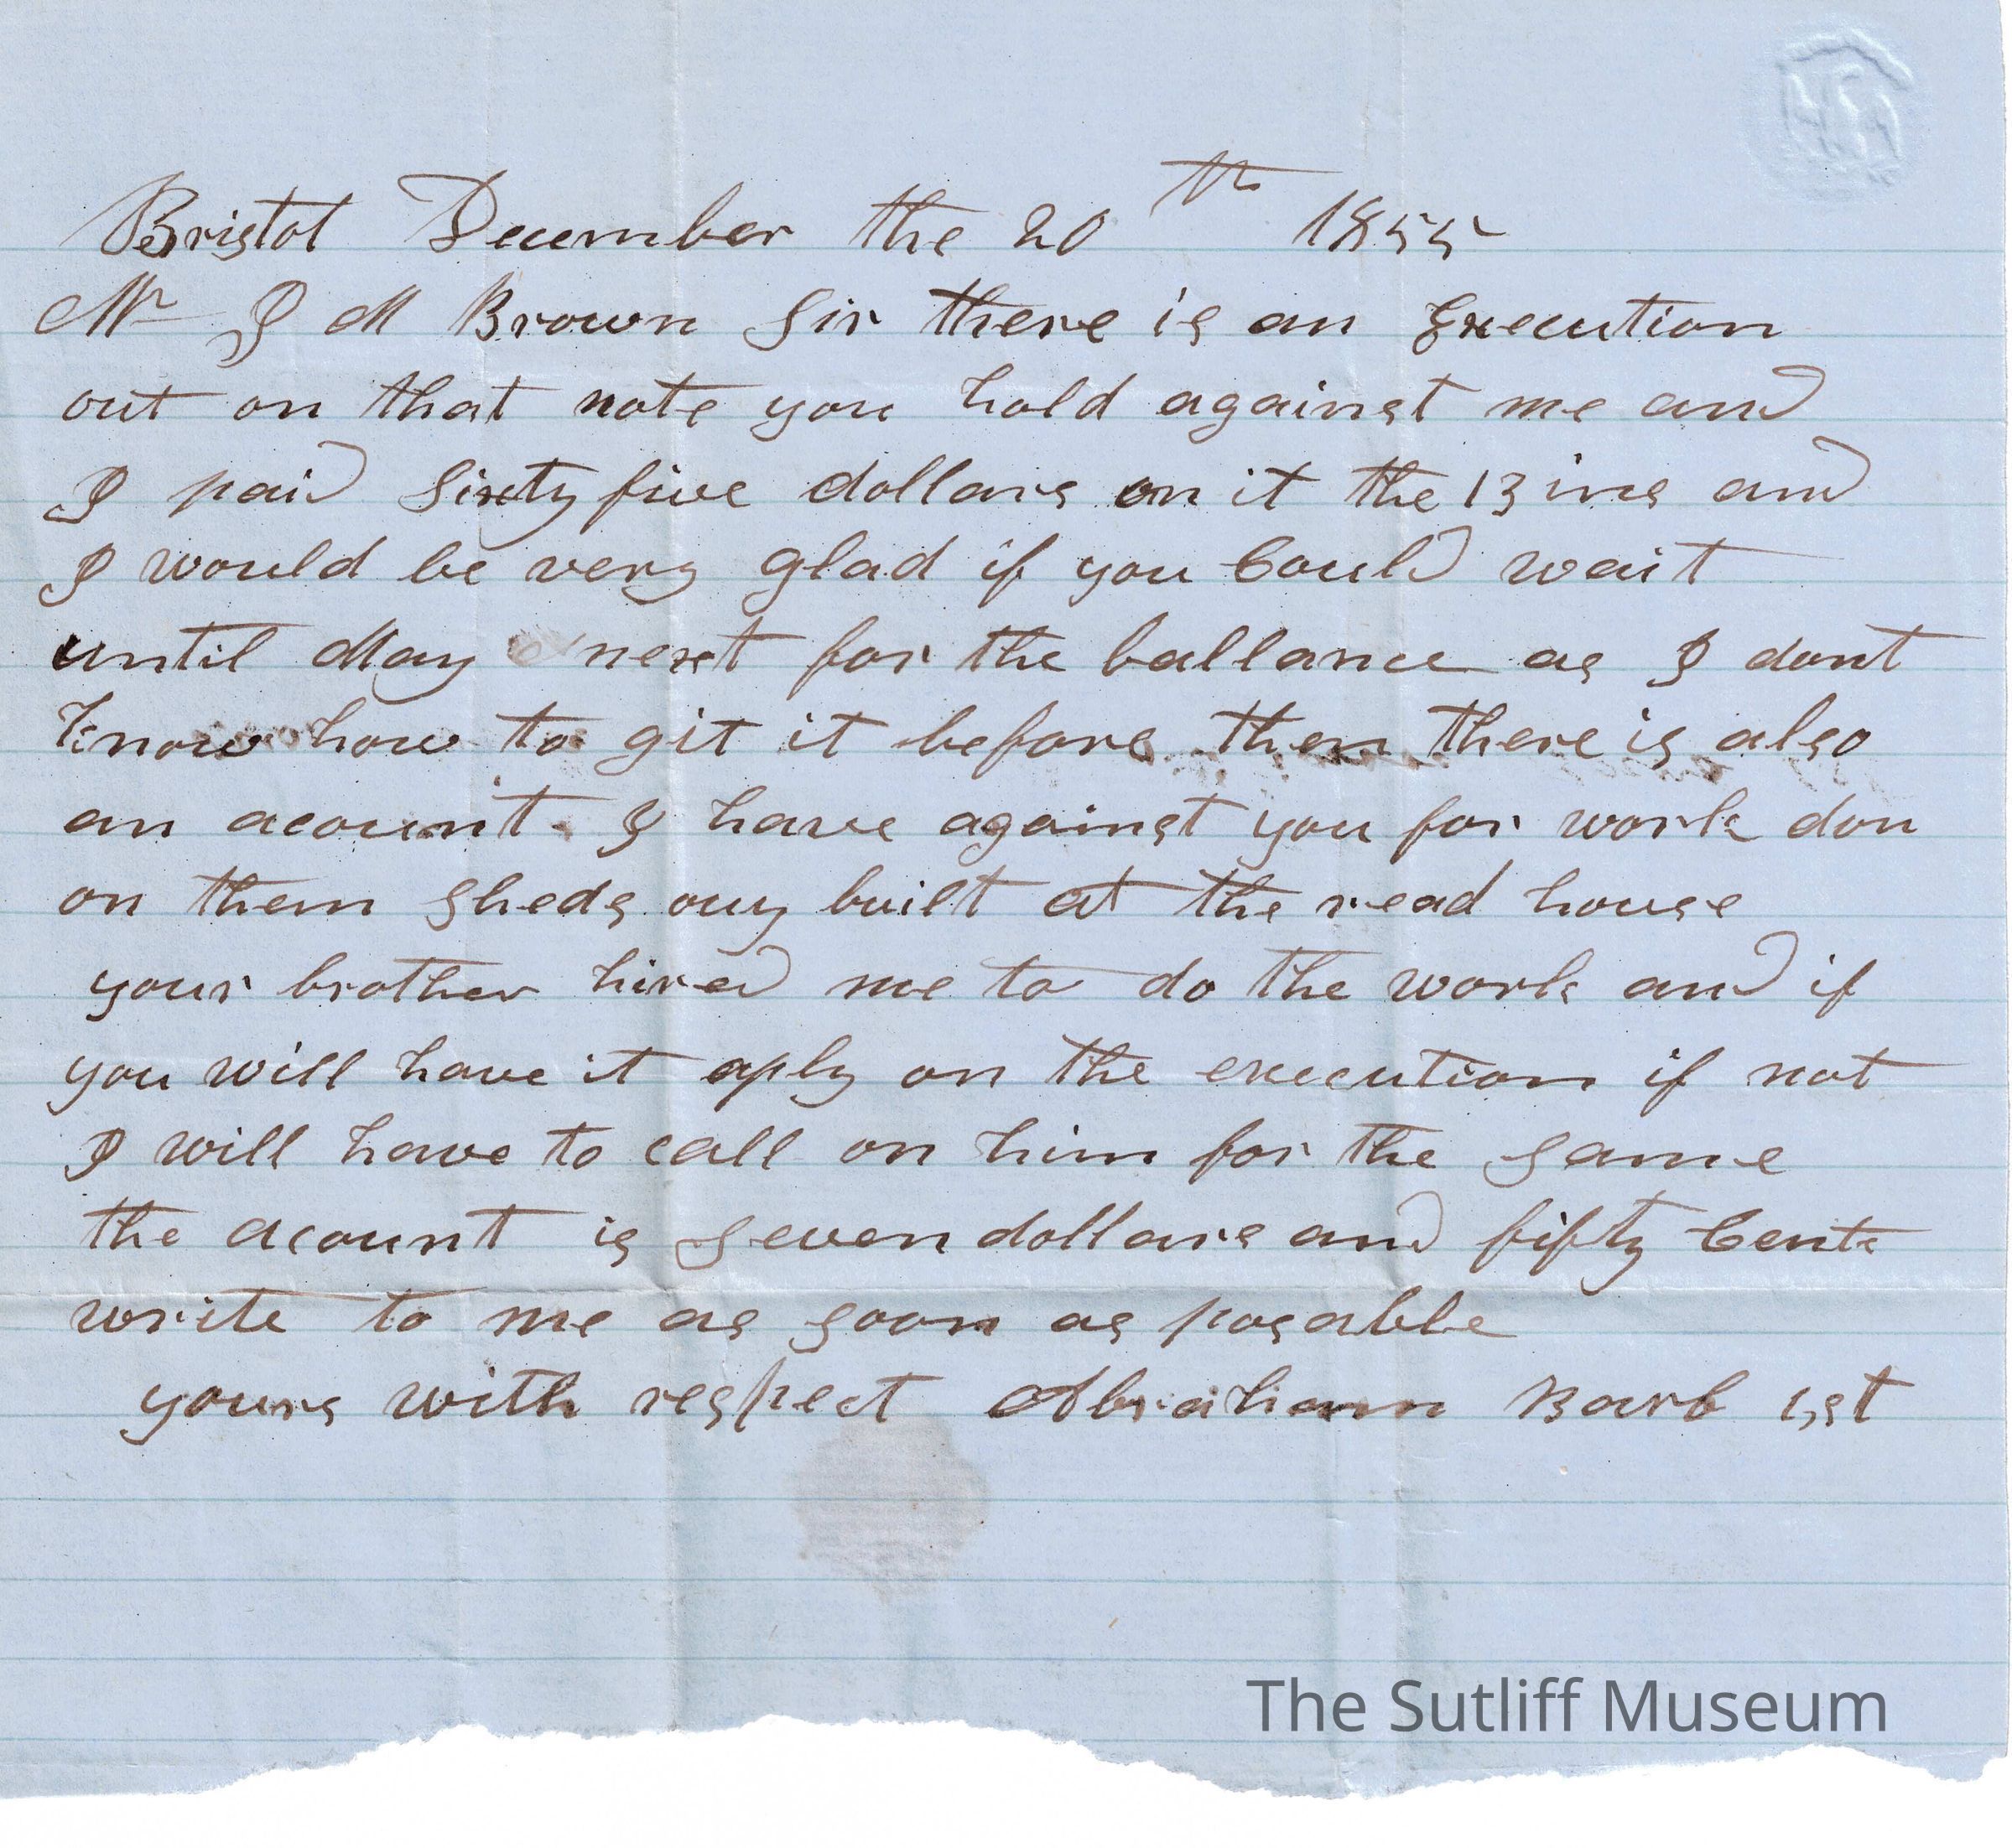 Bristol December the 20th 1855
Mr J M Brown Sir there is an Execution
out on that note you hold against me and
I paid Sixty five dollars on it the 13 ins and
I would be very glad if you Could wait
until May next for the ballance as I dont
know how to git it before then there is also
an acount I have against you for work don
on them Sheds built at the read house
your brother hired me to do the work and if
you will have it aply on the execution if not
I will have to call on him for the same
the acount is Seven dollars and fifty Cents
write to me as soon as posable
yours with respect Abraham Barb 1st
The Sutliff Museum